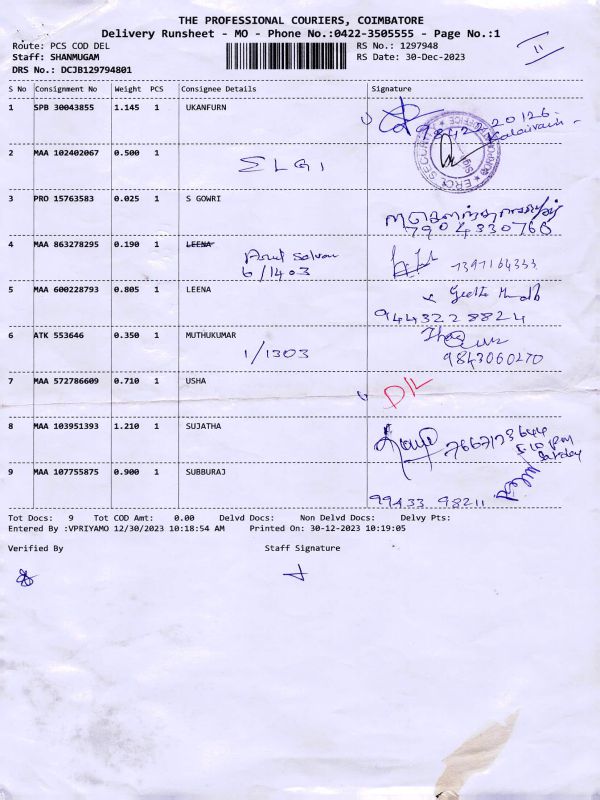 THE PROFESSIONAL COURIERS, COIMBATORE
Delivery Runsheet - MO - Phone No.:0422-3505555 - Page No.:1
Route: PCS COD DEL RS No.: 1297948
Staff: SHANMUGAM RS Date: 30-Dec-2023
DRS No.: DCJB129794801
11
S No Consignment No Weight PCS Consignee Details Signature
1 SPB 30043855 1.145 1 UKANFURN
2 MAA 102402067 0.500 1 ELGI
3 PRO 15763583 0.025 1 S GOWRI
7904330760
4 MAA 863278295 0.190 1 LEENA Arul Selvan
6/1403
5 MAA 600228793 0.805 1 LEENA
9443228824
6 ATK 553646 0.350 1 MUTHUKUMAR
1/1303 9843060270
7 MAA 572786609 0.710 1 USHA D/L
8 MAA 103951393 1.210 1 SUJATHA
9 MAA 107755875 0.900 1 SUBBURAJ
99433 98211
Tot Docs: 9 Tot COD Amt: 0.00 Delvd Docs: Non Delvd Docs: Delvy Pts:
Entered By :VPRIYAMO 12/30/2023 10:18:54 AM Printed On: 30-12-2023 10:19:05
Verified By Staff Signature